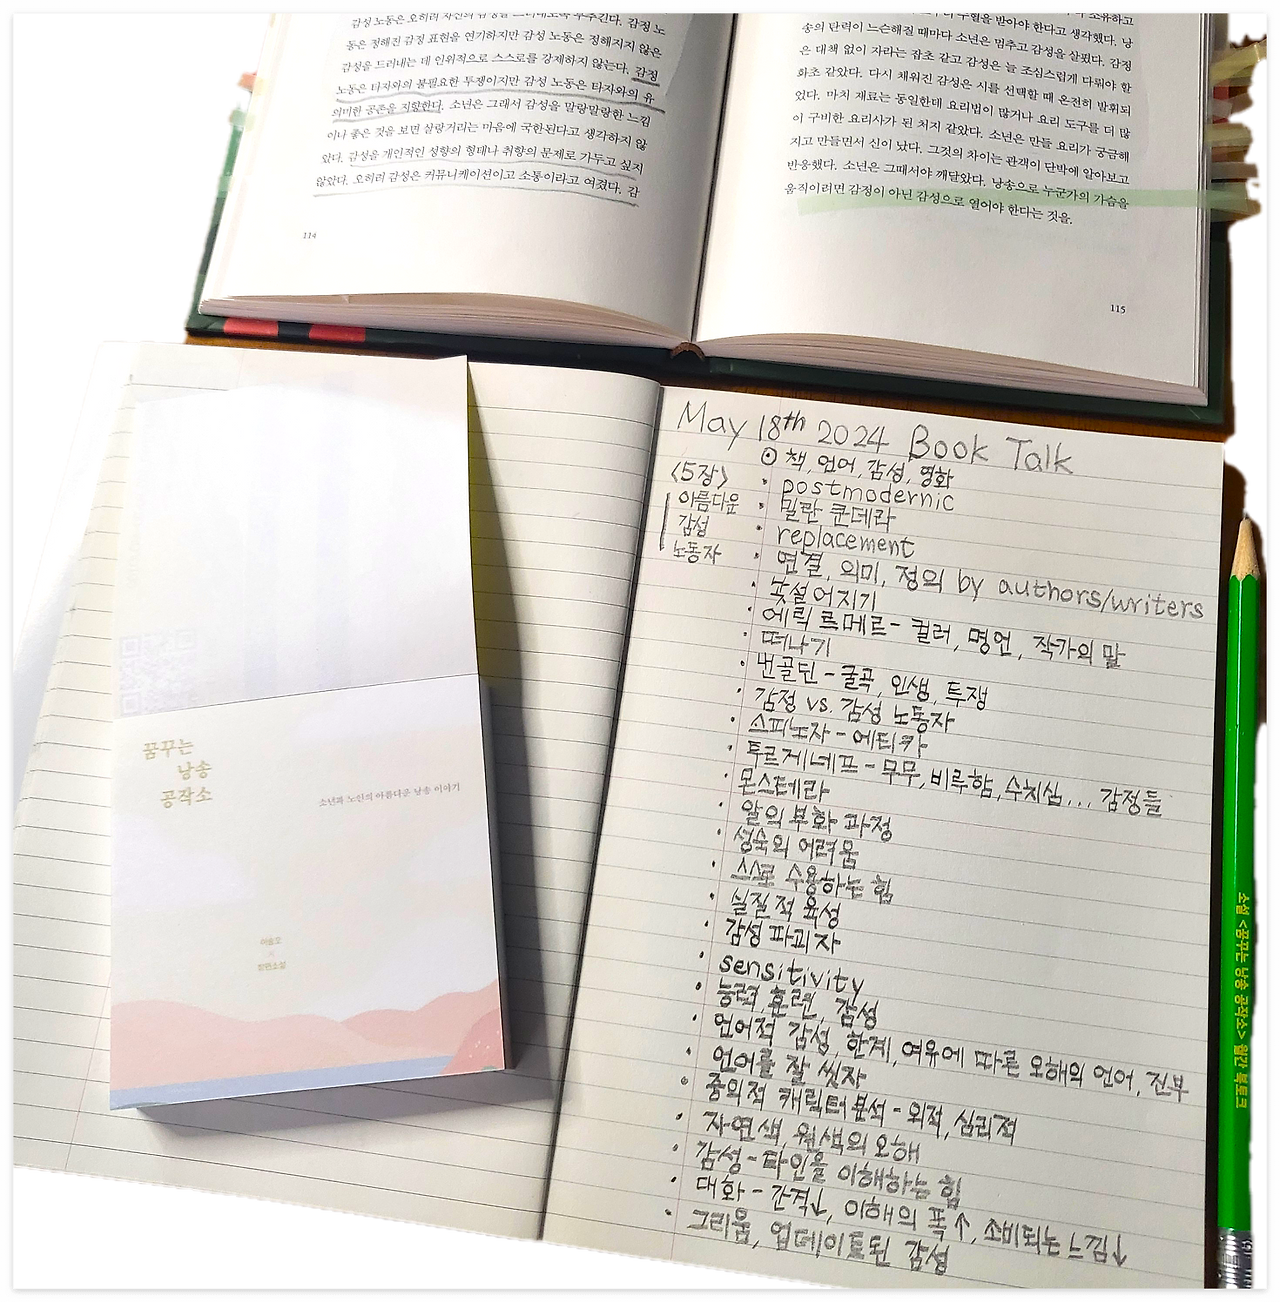 감정 노동은 오히려 자신의 감정을 드러내도록 부추긴다. 감정 노
동은 정해진 감정 표현을 연기하지만 감성 노동은 정해지지 않은
감성을 드러내는 데 인위적으로 스스로를 강제하지 않는다. 감정
노동은 타자와의 불필요한 투쟁이지만 감성 노동은 타자와의 유
의미한 공존을 지향한다. 소년은 그래서 감성을 말랑말랑한 느낌
이나 좋은 것을 보면 살랑거리는 마음에 국한된다고 생각하지 않
았다. 감성을 개인적인 성향의 형태나 취향의 문제로 가두고 싶지
않았다. 오히려 감성은 커뮤니케이션이고 소통이라고 여겼다. 감
114
받아야 한다고 생각했다. 낭
송의 탄력이 느슨해질 때마다 소년은 멈추고 감성을 살폈다. 감정
은 대책 없이 자라는 잡초 같고 감성은 늘 조심스럽게 다뤄야 할
화초 같았다. 다시 채워진 감성은 시를 선택할 때 온전히 발휘되
었다. 마치 재료는 동일한데 요리법이 많거나 요리 도구를 더 많
이 구비한 요리사가 된 처지 같았다. 소년은 만들 요리가 궁금해
지고 만들면서 신이 났다. 그것의 차이는 관객이 단박에 알아보고
반응했다. 소년은 그때서야 깨달았다. 낭송으로 누군가의 가슴을
움직이려면 감정이 아닌 감성으로 열어야 한다는 것을.
115
May 18th 2024 Book Talk
⊙ 책, 언어, 감성, 영화
<5장>
아름다운
감성
노동자
· postmodernic
· 밀란 쿤데라
· replacement
· 연결, 의미, 정의 by authors/writers
· 낯설어지기
· 에릭 로메르 - 컬러, 명언, 작가의 말
· 떠나기
· 낸골딘 - 굴곡, 인생, 투쟁
· 감정 vs. 감성 노동자
· 스피노자 - 에티카
· 투르게네프 - 무무, 비루함, 수치심... 감정들
· 몬스테라
· 알의 부화 과정
· 성숙의 어려움
· 스스로 수용하는 힘
· 실질적 육성
· 감성 파괴자
· sensitivity
· 능력, 훈련, 감성
· 언어적 감성, 한계, 여유에 따른 오해의 언어, 전부
· 언어를 잘 씻자
· 중의적 캐릭터 분석 - 외적, 심리적
· 자연색, 원색의 오해
· 감성 - 타인을 이해하는 힘
· 대화 - 간격↓, 이해의 폭↑, 소비되는 느낌↑
· 그리움, 업데이트된 감성
꿈꾸는
낭송
공작소
소년과 노인의 아름다운 낭송 이야기
이숲오
장편소설
소설 <꿈꾸는 낭송 공작소> 월간 북토크